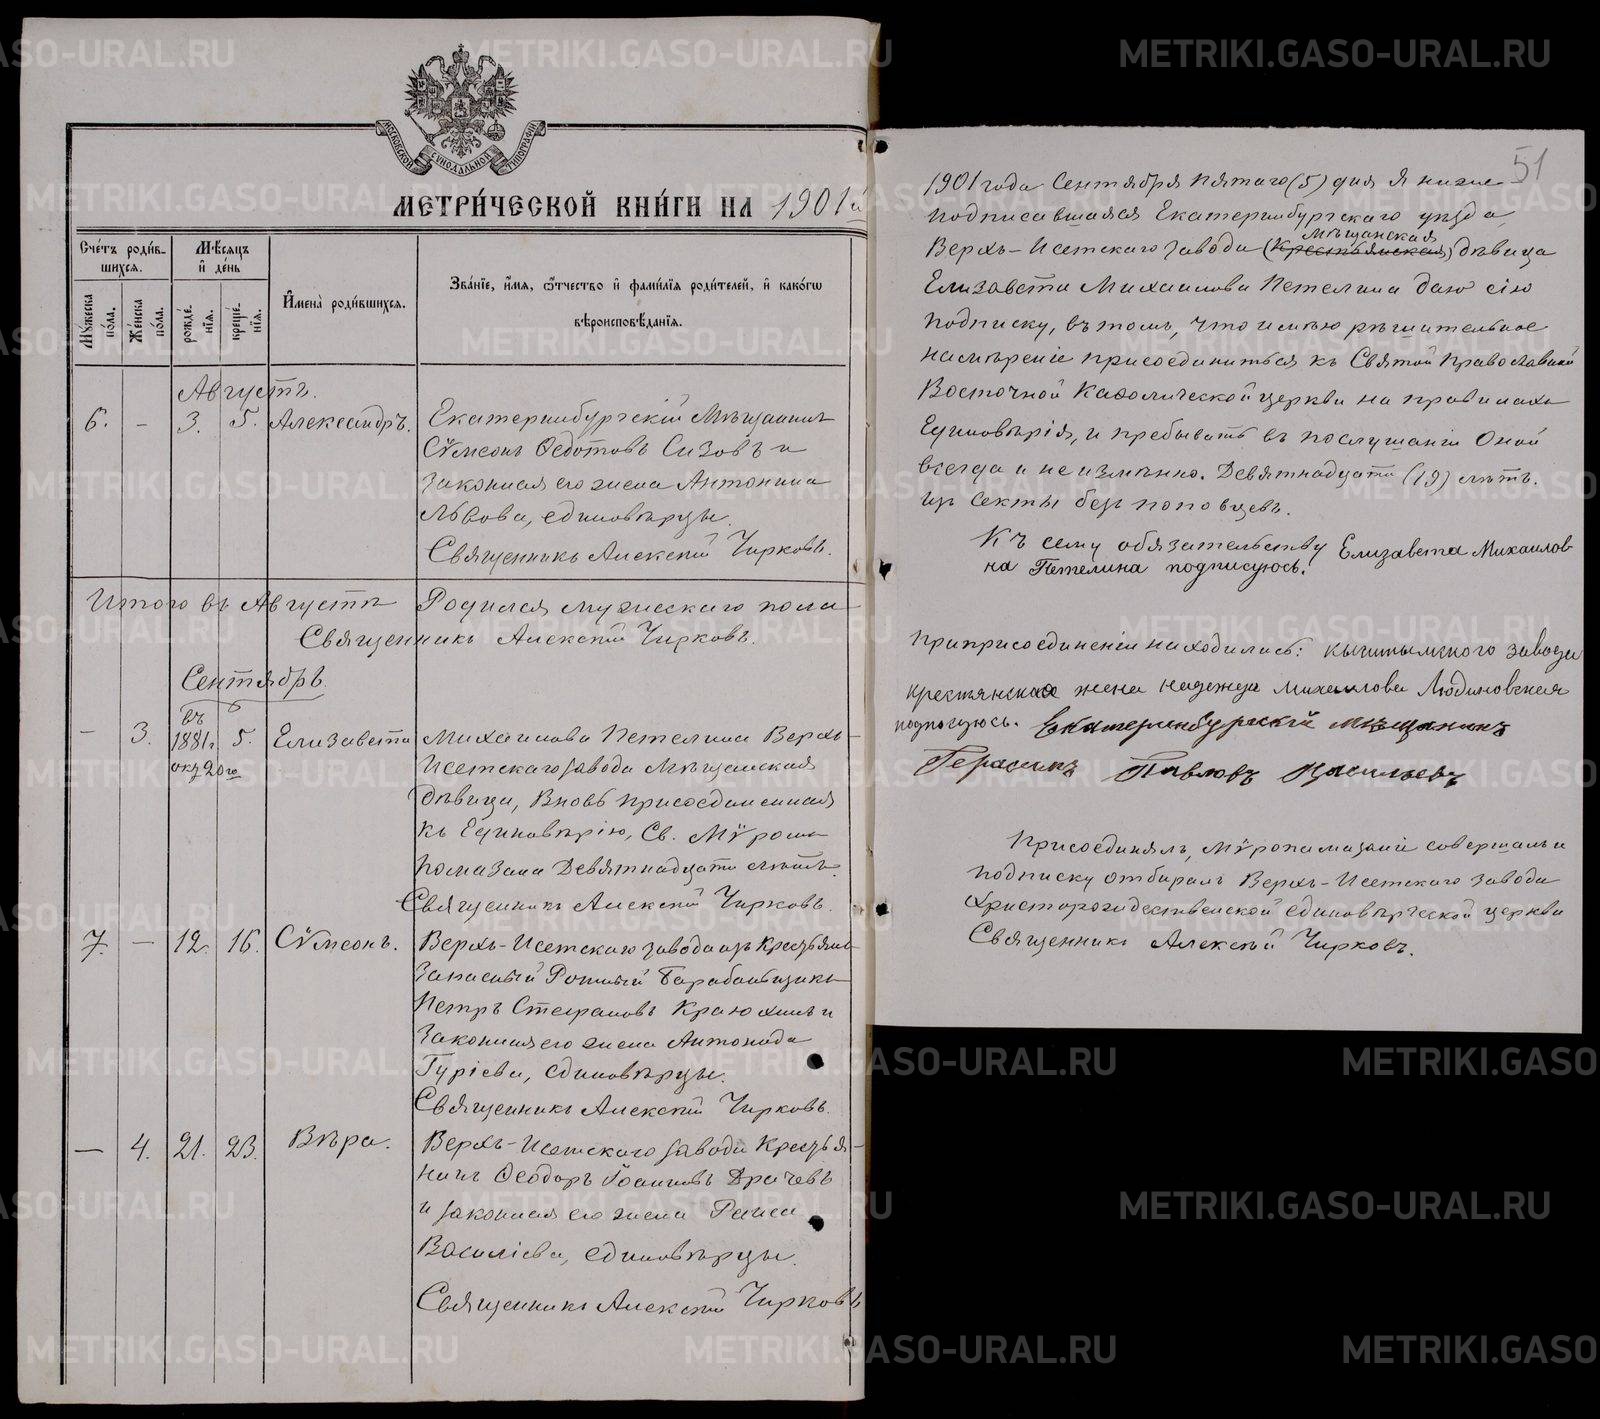 МОСКОВСКОЙ СѴНОДАЛЬНОЙ ТИПОГРАФІИ
МЕТРИ́ЧЕСКОЙ КНИ́ГИ НА 1901 й
Сче́тъ роди́вшихся.
Мѣ́сяцъ и҆ де́нь
Мꙋ́жеска по́ла.
Же́нска по́ла.
рожде́нїѧ.
креще́нїѧ.
И҆мена̀ роди́вшихся.
Зва́нїе, и҆́мѧ, ѻ҆́тчество и҆ фами́лїѧ роди́телей, и҆ како́гѡ
вѣроисповѣ́данїѧ.
Августъ.
6. - 3. 5. Александръ. Екатеринбургскій Мѣщанинъ
Сѵмеонъ Ѳедотовъ Сизовъ и
законная его жена Антонина
Львова, единовѣрцы.
Священникъ Алексѣй Чирковъ.
Итого въ Августѣ Родился мужескаго пола
Священникъ Алексѣй Чирковъ.
Сентябрь.
- 3. въ 1881 г. окт 20го 5. Елизавета Михаилова Петелина Верхъ-
Исетскаго завода Мѣщанская
дѣвица, Вновь присоединенная
къ Единовѣрію, Св. Мѵромъ
помазана Девятнадцати лѣтъ.
Священникъ Алексѣй Чирковъ.
7. - 12. 16. Сѵмеонъ. Верхъ-Исетскаго завода изъ крестьянъ
Запасный Ротный Барабанщикъ
Петръ Стефановъ Краюхинъ и
Законная его жена Антонида
Гуріева, единовѣрцы.
Священникъ Алексѣй Чирковъ.
— 4. 21. 23. Вѣра. Верхъ-Исетскаго завода Крестья-
нинъ Ѳеодоръ Іоанновъ Драчевъ
и законная его жена Раиса
Василіева, единовѣрцы.
Священникъ Алексѣй Чирковъ
51
1901 года Сентября пятаго (5) дня Я ниже
подписавшаяся Екатеринбургскаго уѣзда
Мѣщанская
Верхъ-Исетскаго завода (Крестьянская) дѣвица
Елизавета Михаилова Петелина даю сію
подписку, въ томъ, что имѣю рѣшительное
намѣреніе присоединиться къ Святой Православной
Восточной Каѳолической церкви на правилахъ
Единовѣрія, и пребывать въ послушаніи Оной
всегда и неизмѣнно. Девятнадцати (19) лѣтъ.
изъ секты безпоповцевъ.
Къ сему обязательству Елизавета Михаилов
на Петелина подписуюсь.
При присоединеніи находились: Кыштымского завода
крестянская жена Надежда Михаилова Людиновская
подпосуюсь. Екатеринбурскій мѣщанинъ
Герасимъ Павловъ Васильевъ
Присоединялъ, мѵропамазаніе совершалъ и
подписку отбиралъ Верхъ-Исетскаго завода
Христорождественской единовѣрческой церкви
Священникъ Алексѣй Чирковъ.
METRIKI.GASO-URAL.RU